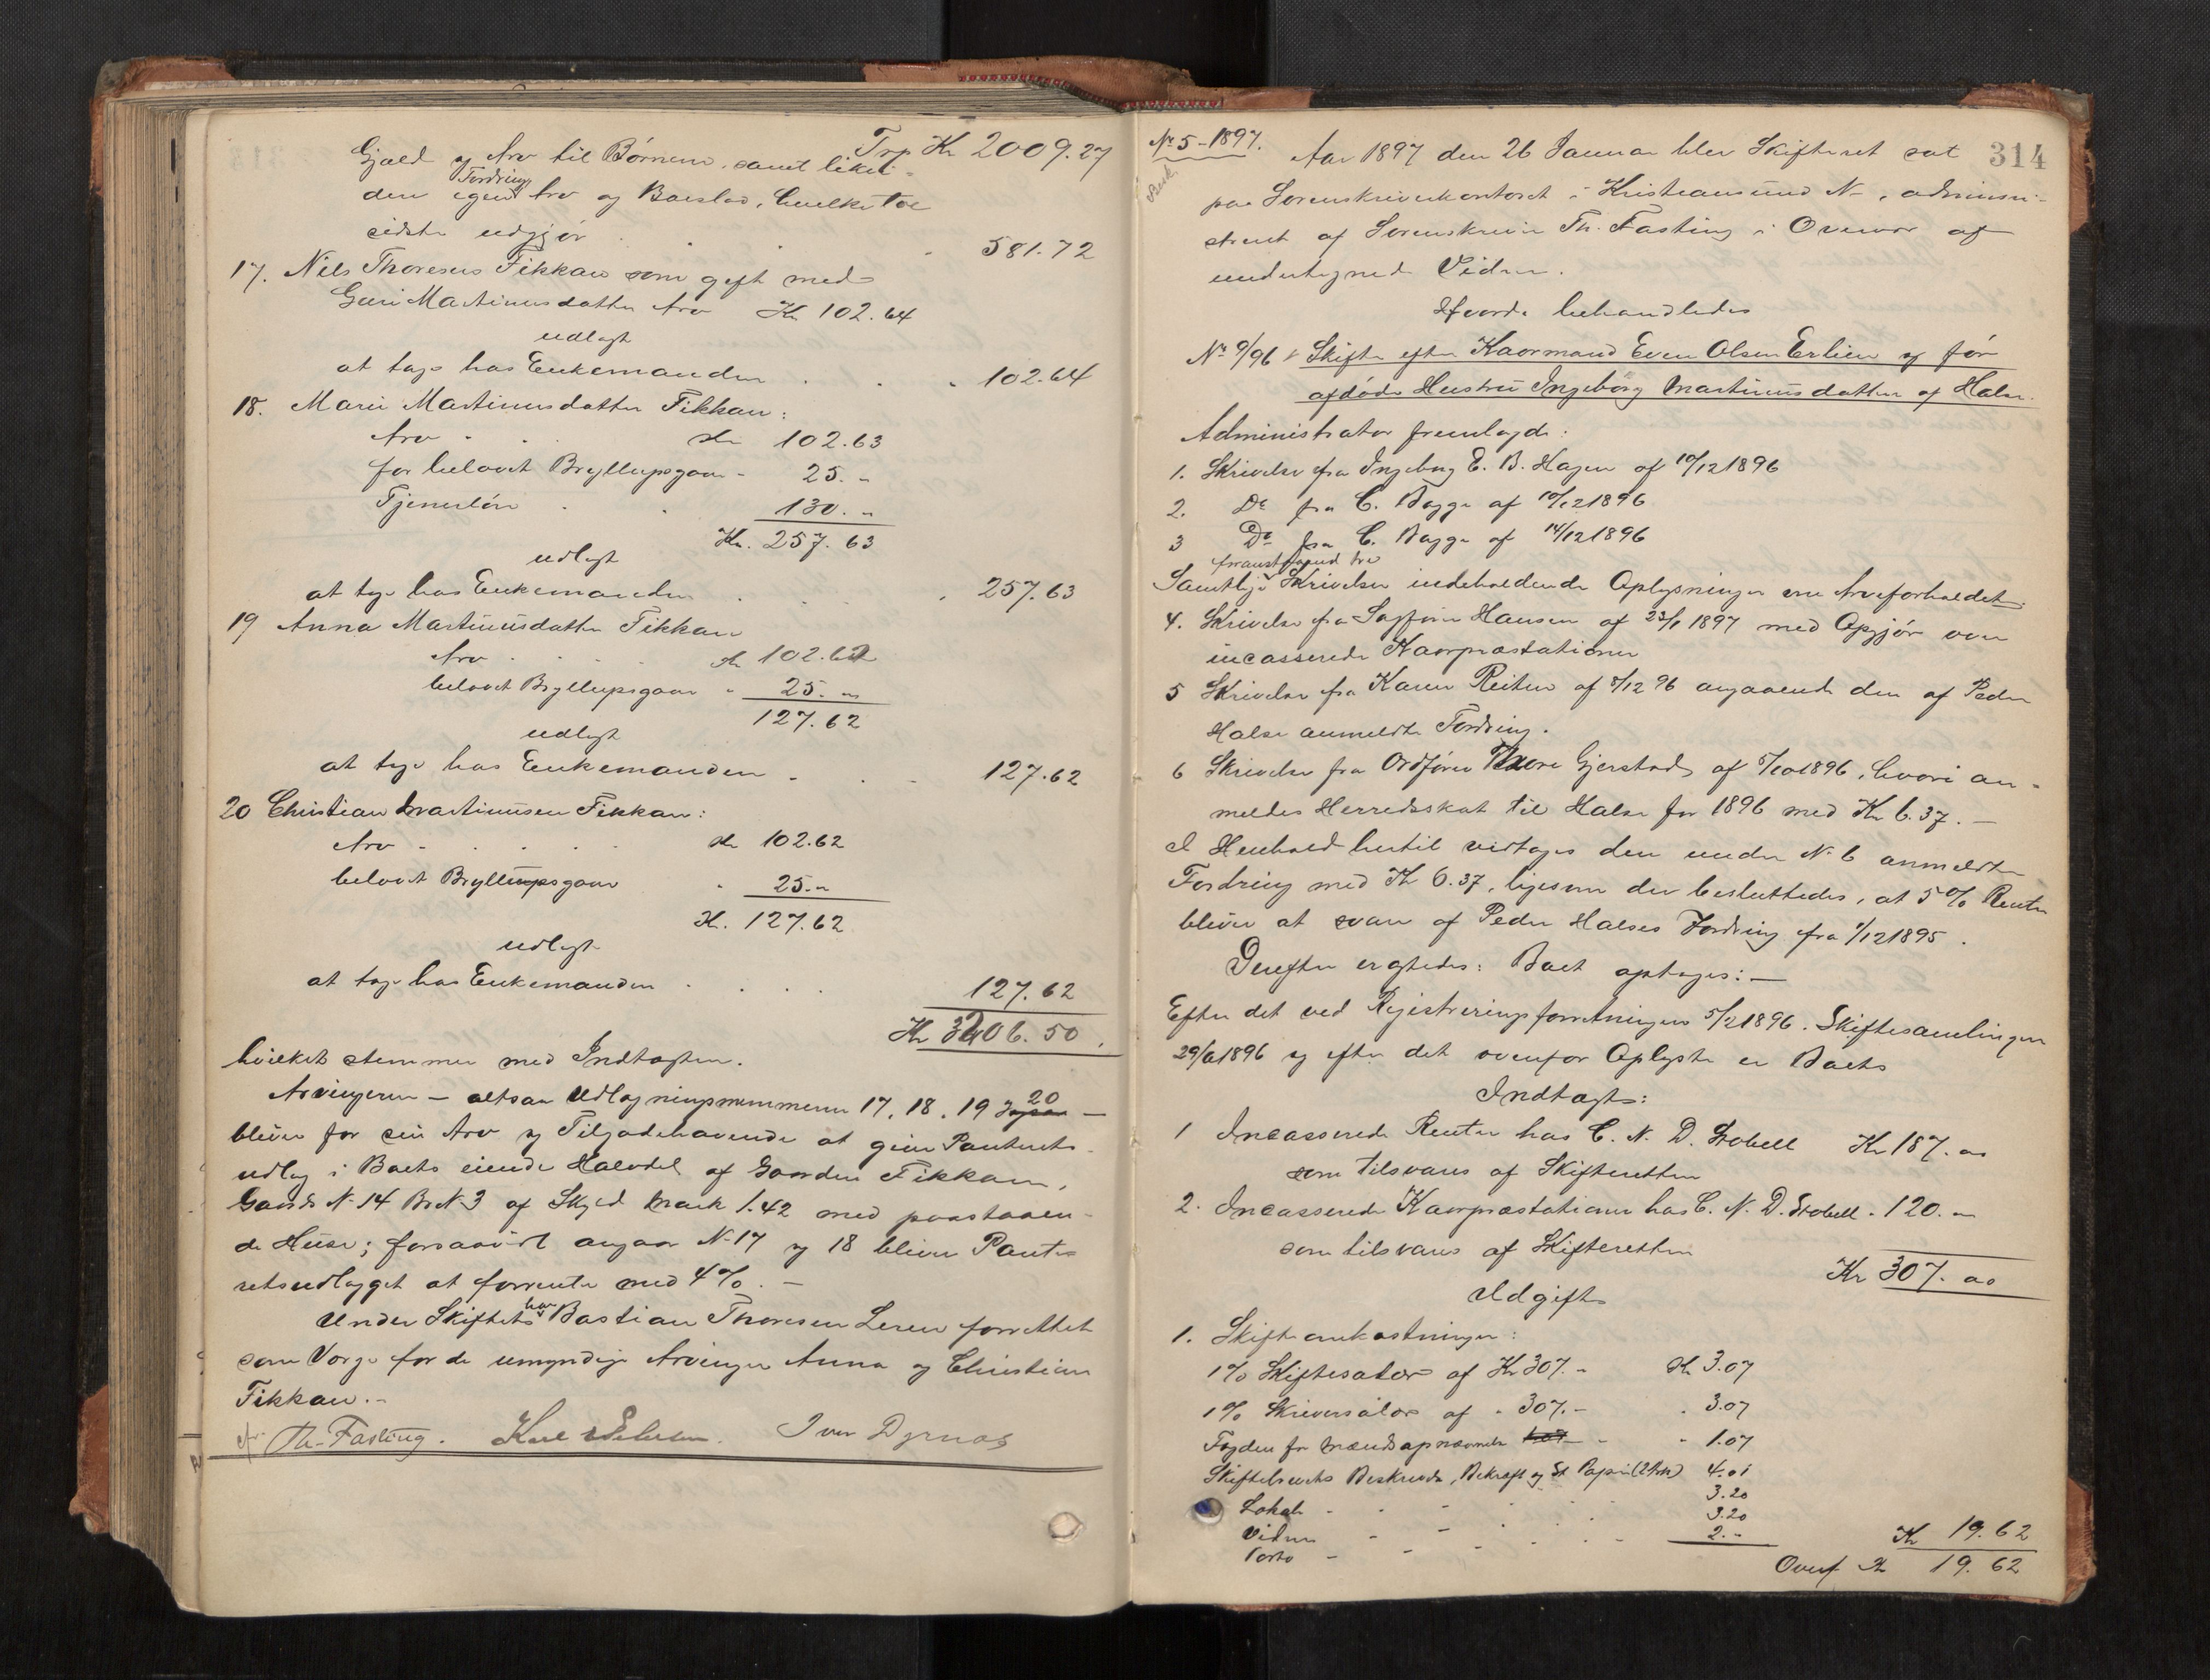 Trp Kr 2009.27
Gjæld og Arv til Børnene, samt liken-
den egen Fordring Arv og Boeslod, hvilke toe
sidste udgjør 581.72
17. Nils Thoresen Fikkan som gift med
Guri Martinusdatter Arv Kr 102.64
udlagt
at tage hos Enkemanden 102.64
18. Marie Martinusdatter Fikkan:
Arv Kr 102.63
for belovet Bryllupsgaar - 25. -
Tjenerløn 130. -
Kr. 257.63
udlagt
at tage hos Enkemanden 257.63
19 Anna Martinusdatter Fikkan
Arv Kr 102.62
belovet Bryllupsgaar 25. -
127.62
udlagt
at tage hos Enkemanden 127.62
20 Christian Martinussen Fikkan:
Arv Kr 102.62
belovet Bryllupsgaar 25. -
Kr. 127.62
udlagt
at tage hos Enkemanden 127.62
Kr 3206.50.
hvilket stemmer med Indtægten.
Arvingerne - altsaa Udlægningsnummerne 17, 18, 19 og 20 -
bliver for sin Arv og Tilgodehavende at give Panterets-
udlæg i Boets eiende Halvdel af Gaarden Fikkan,
Gaards No 14 Br No 3 af Skyld Mark 1.42 med paastaaen-
de Huse; forsaavidt angaar No 17 og 18 bliver Pante-
retsudlægget at forrente med 4%. -
Under Skiftet har Bastian Thoresen Leren forrettet
som Værge for de umyndige Arvinger Anna og Christian
Fikkan. -
Th. Fasting. Iver Dyrnæs
314
No 5 - 1897.
Aar 1897 den 26 Januar blev Skifteret sat
paa Sorenskriverkontoret i Kristiansund N -, admini-
streret af Sorenskriver Th. Fasting i Overvær af
undertegnede Vidner.
Hvorda behandledes
No 9/96 Skifte efter Kaarmand Even Olsen Erlien og før
afdøde Hustru Ingeborg Martinusdatter af Halse.
Administrator fremlagde:
1. Skrivelse fra Ingeborg E. B. Hagen af 10/12 1896
2. Do fra C. Bagge af 10/12 1896
3 Do fra C. Bagge af 14/12 1896
Samtlige foranstaaende tre Skrivelser indeholdende Oplysninger om Arveforholdet.
4. Skrivelse fra Sagfører Hansen af 23/1 1897 med Opgjør over
incasserede Kaarpræstationer
5 Skrivelse fra Karen Reiten af 8/12 96 angaaende den af Peder
Halse anmeldte Fordring.
6 Skrivelse fra Ordfører Thore Gjerstad af 5/10 1896, hvori an-
meldes Herredsskat til Halse for 1896 med Kr 6.37. -
I Henhold hertil vedtages den under No 6 anmeldte
Fordring med Kr 6.37, ligesom der besluttedes, at 5% Renter
bliver at svare af Peder Halses Fordring fra 1/12 1895.
Derefter vedtoges: Boet optages: -
Efter det ved Registreringsforretningen 5/2 1896. Skiftesamlingen
29/6 1896 og efter det ovenfor Oplyste er Boets
Indtægt:
1 Incasserede Renter hos C. N. D. Stobell Kr 187. -
som tilsvares af Skifteretten
2. Incasserede Kaarpræstationer hos C. N. D. Stobell - 120. -
som tilsvares af Skifteretten
Kr 307.00
Udgift
1. Skifteomkostninger:
1% Skiftesalær af Kr 307. - Kr 3.07
1% Skriversalær af - 307. - - 3.07
Fogden for Mændsopnævnelse - 1.07
Skiftebrevets Beskrivelse, Bekræft og St Papir (2 Ark) 4.01
Lokale - 3.20
Vidner - 3.20
Porto - 2. -
Kr 19.62
Overf Kr 19.62